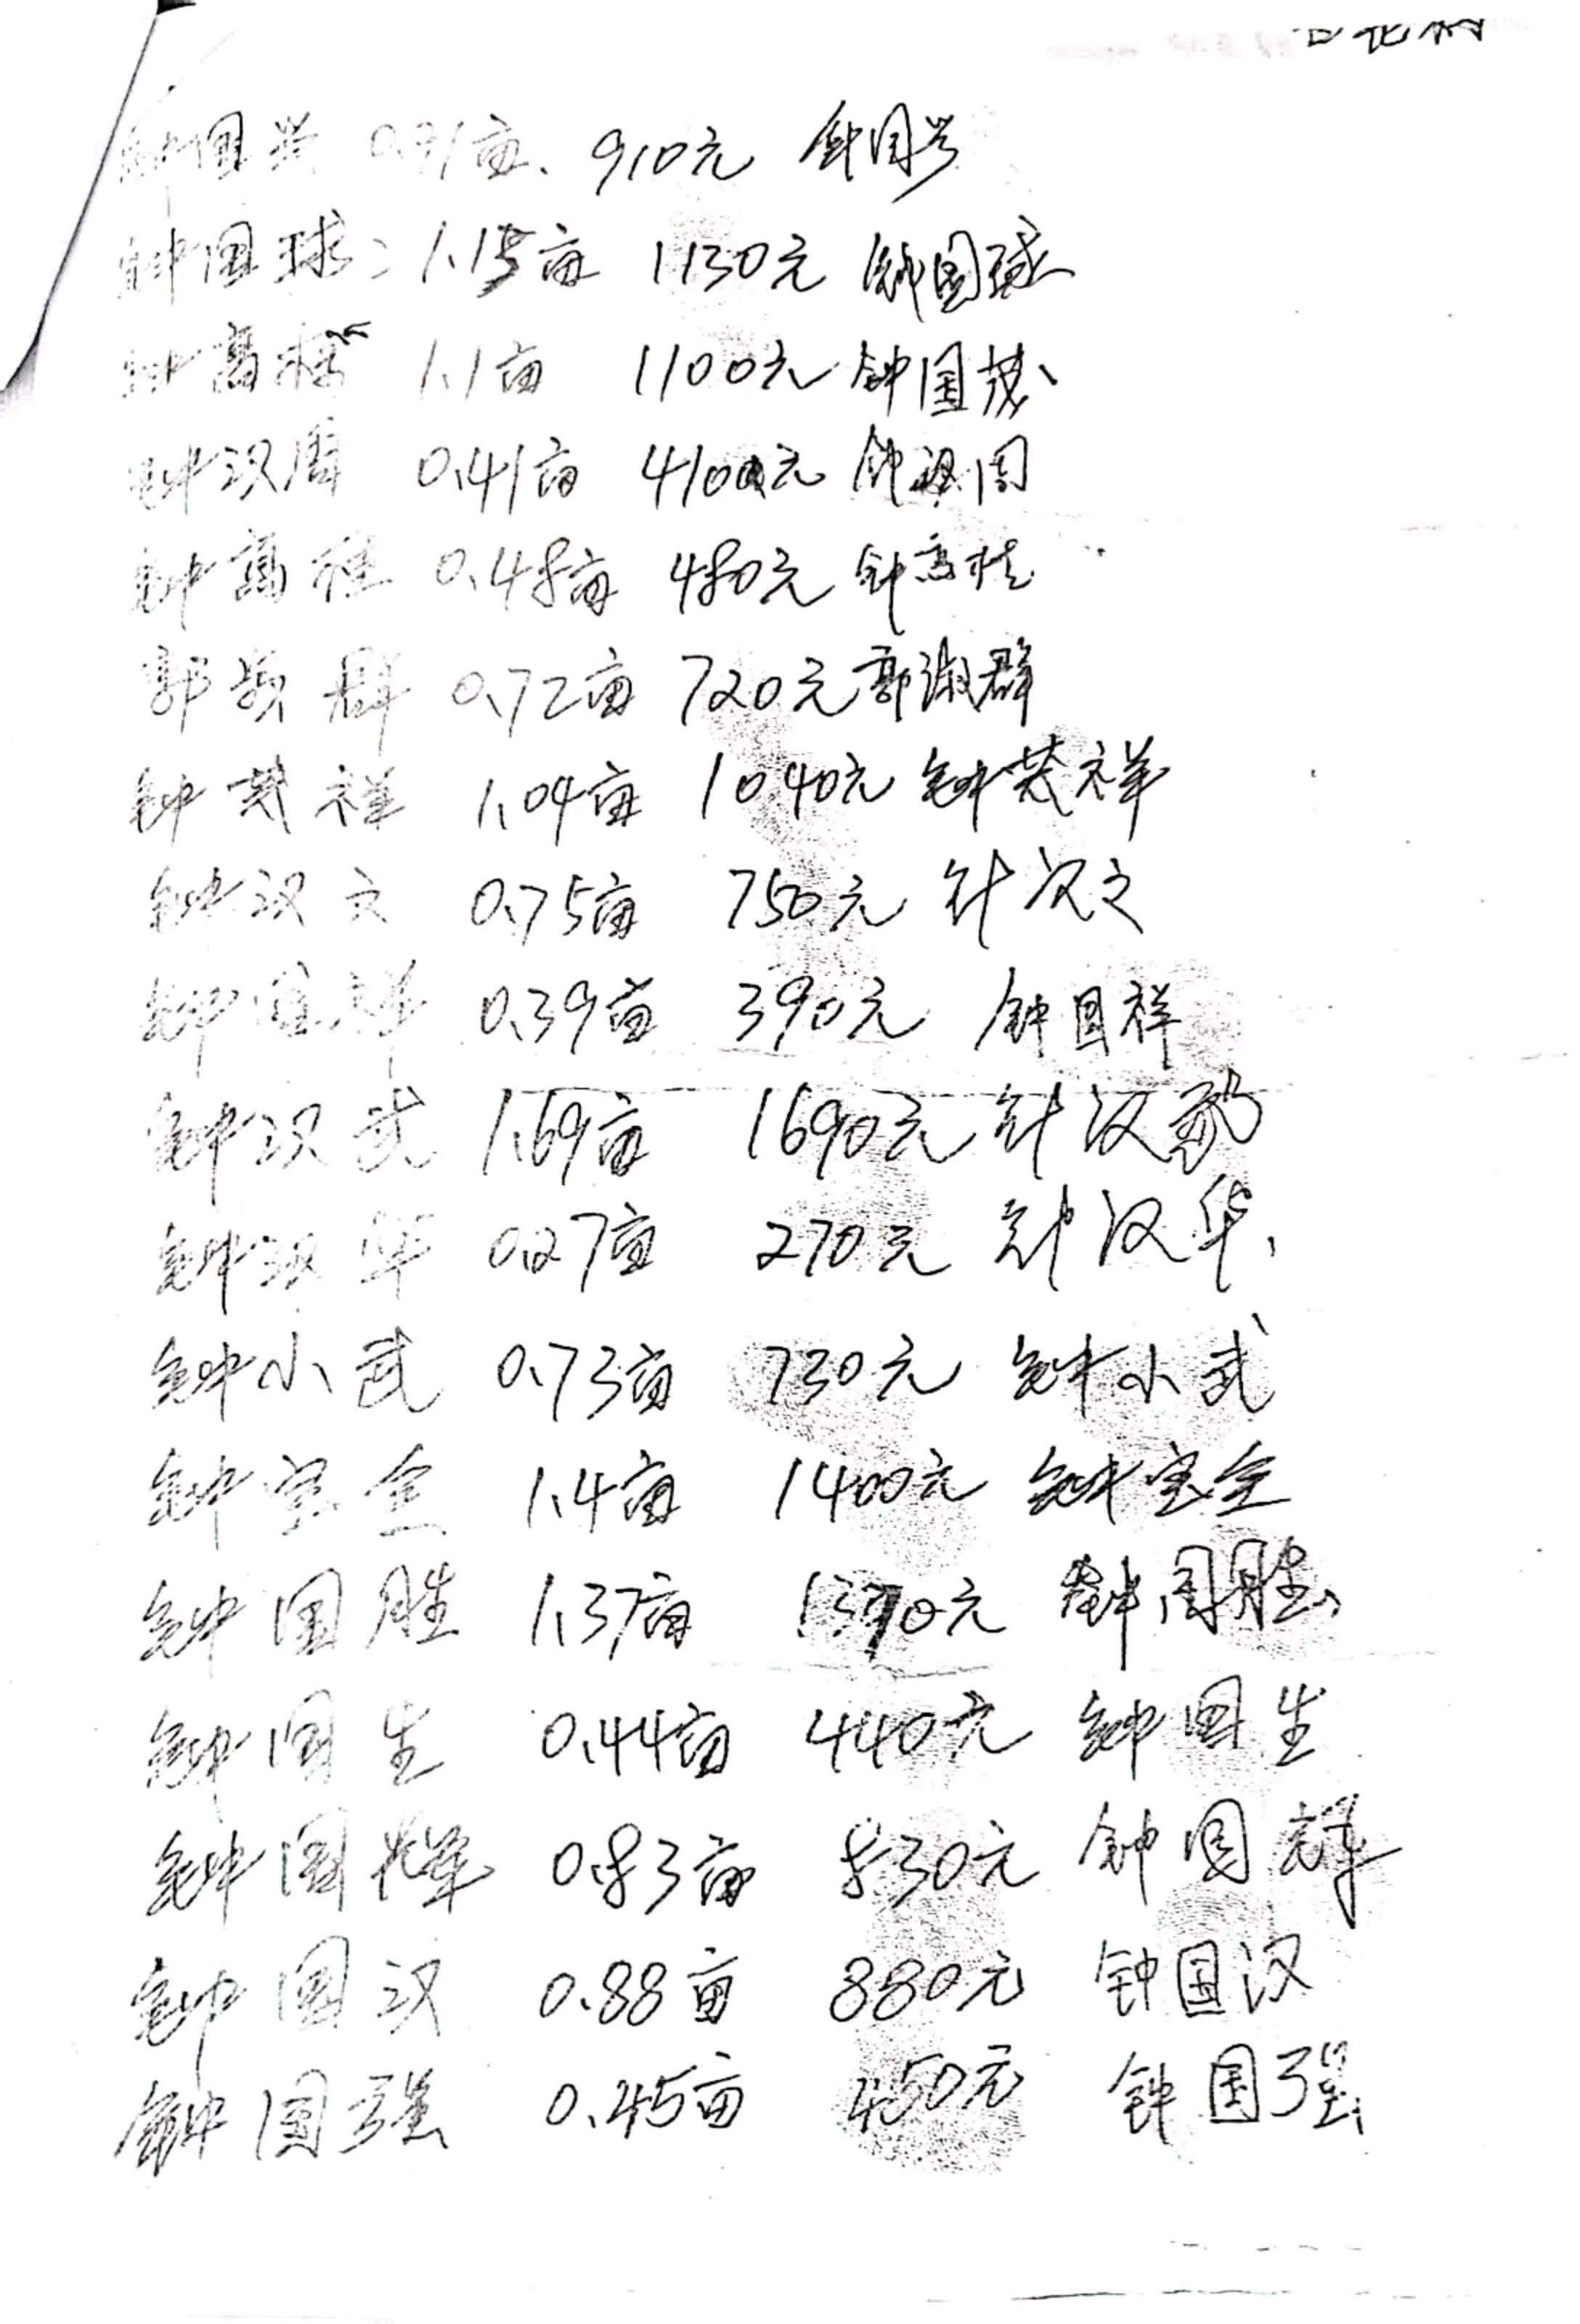 钟国 0.91亩、 910元 钟国
钟国球: 1.15亩 1130元 钟国球
钟高标 1.1亩 1100元 钟国茂
钟汉周 0.41亩 410元 钟汉周
钟高 0.48亩 480元 钟高桂
郭淑群 0.72亩 720元 郭淑群
钟茂祥 1.04亩 1040元 钟茂祥
钟汉文 0.75亩 750元 钟汉文
钟国祥 0.39亩 390元 钟国祥
钟汉武 1.69亩 1690元 钟汉
钟汉华 0.27亩 270元 钟汉华
钟小武 0.73亩 730元 钟小武
钟宝全 1.4亩 1400元 钟宝全
钟国胜 1.37亩 1370元 钟国胜
钟国生 0.44亩 440元 钟国生
钟国辉 0.83亩 830元 钟国辉
钟国汉 0.88亩 880元 钟国汉
钟国强 0.45亩 450元 钟国强